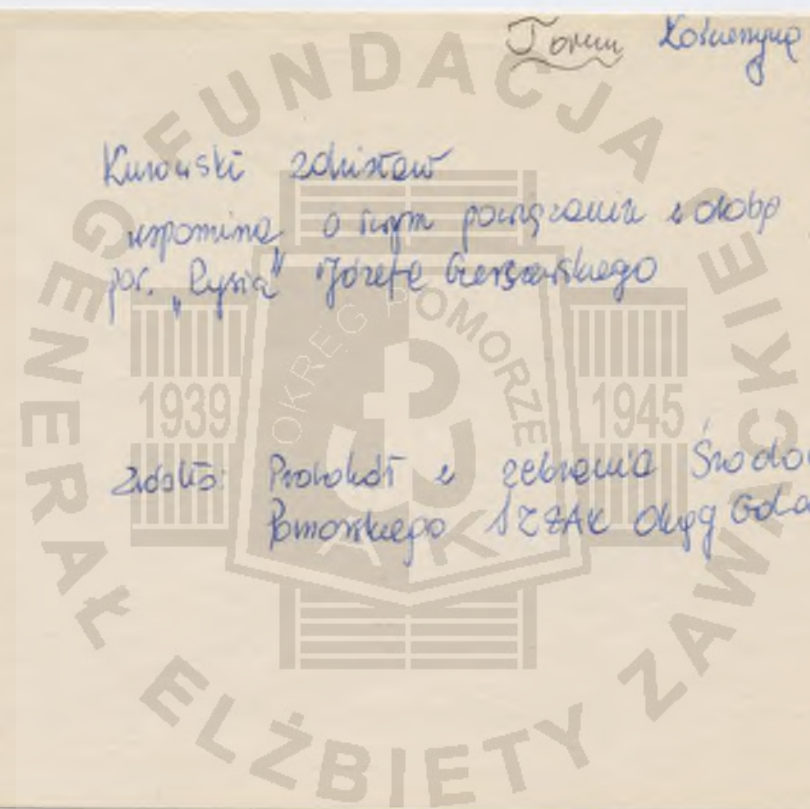 Toruń Kościerzyna
Kurowski Zdzisław
wspomina o swym powiązaniu z osobą
por. „Rysia" Józefa Gierszewskiego
źródło: Protokół z zebrania Środo
Pomorskiego ŚZŻAK Okręg Gda
FUNDACJA
GENERAŁ ELŻBIETY ZAWACKIEJ
OKRĘG POMORZE
1939
1945
AK